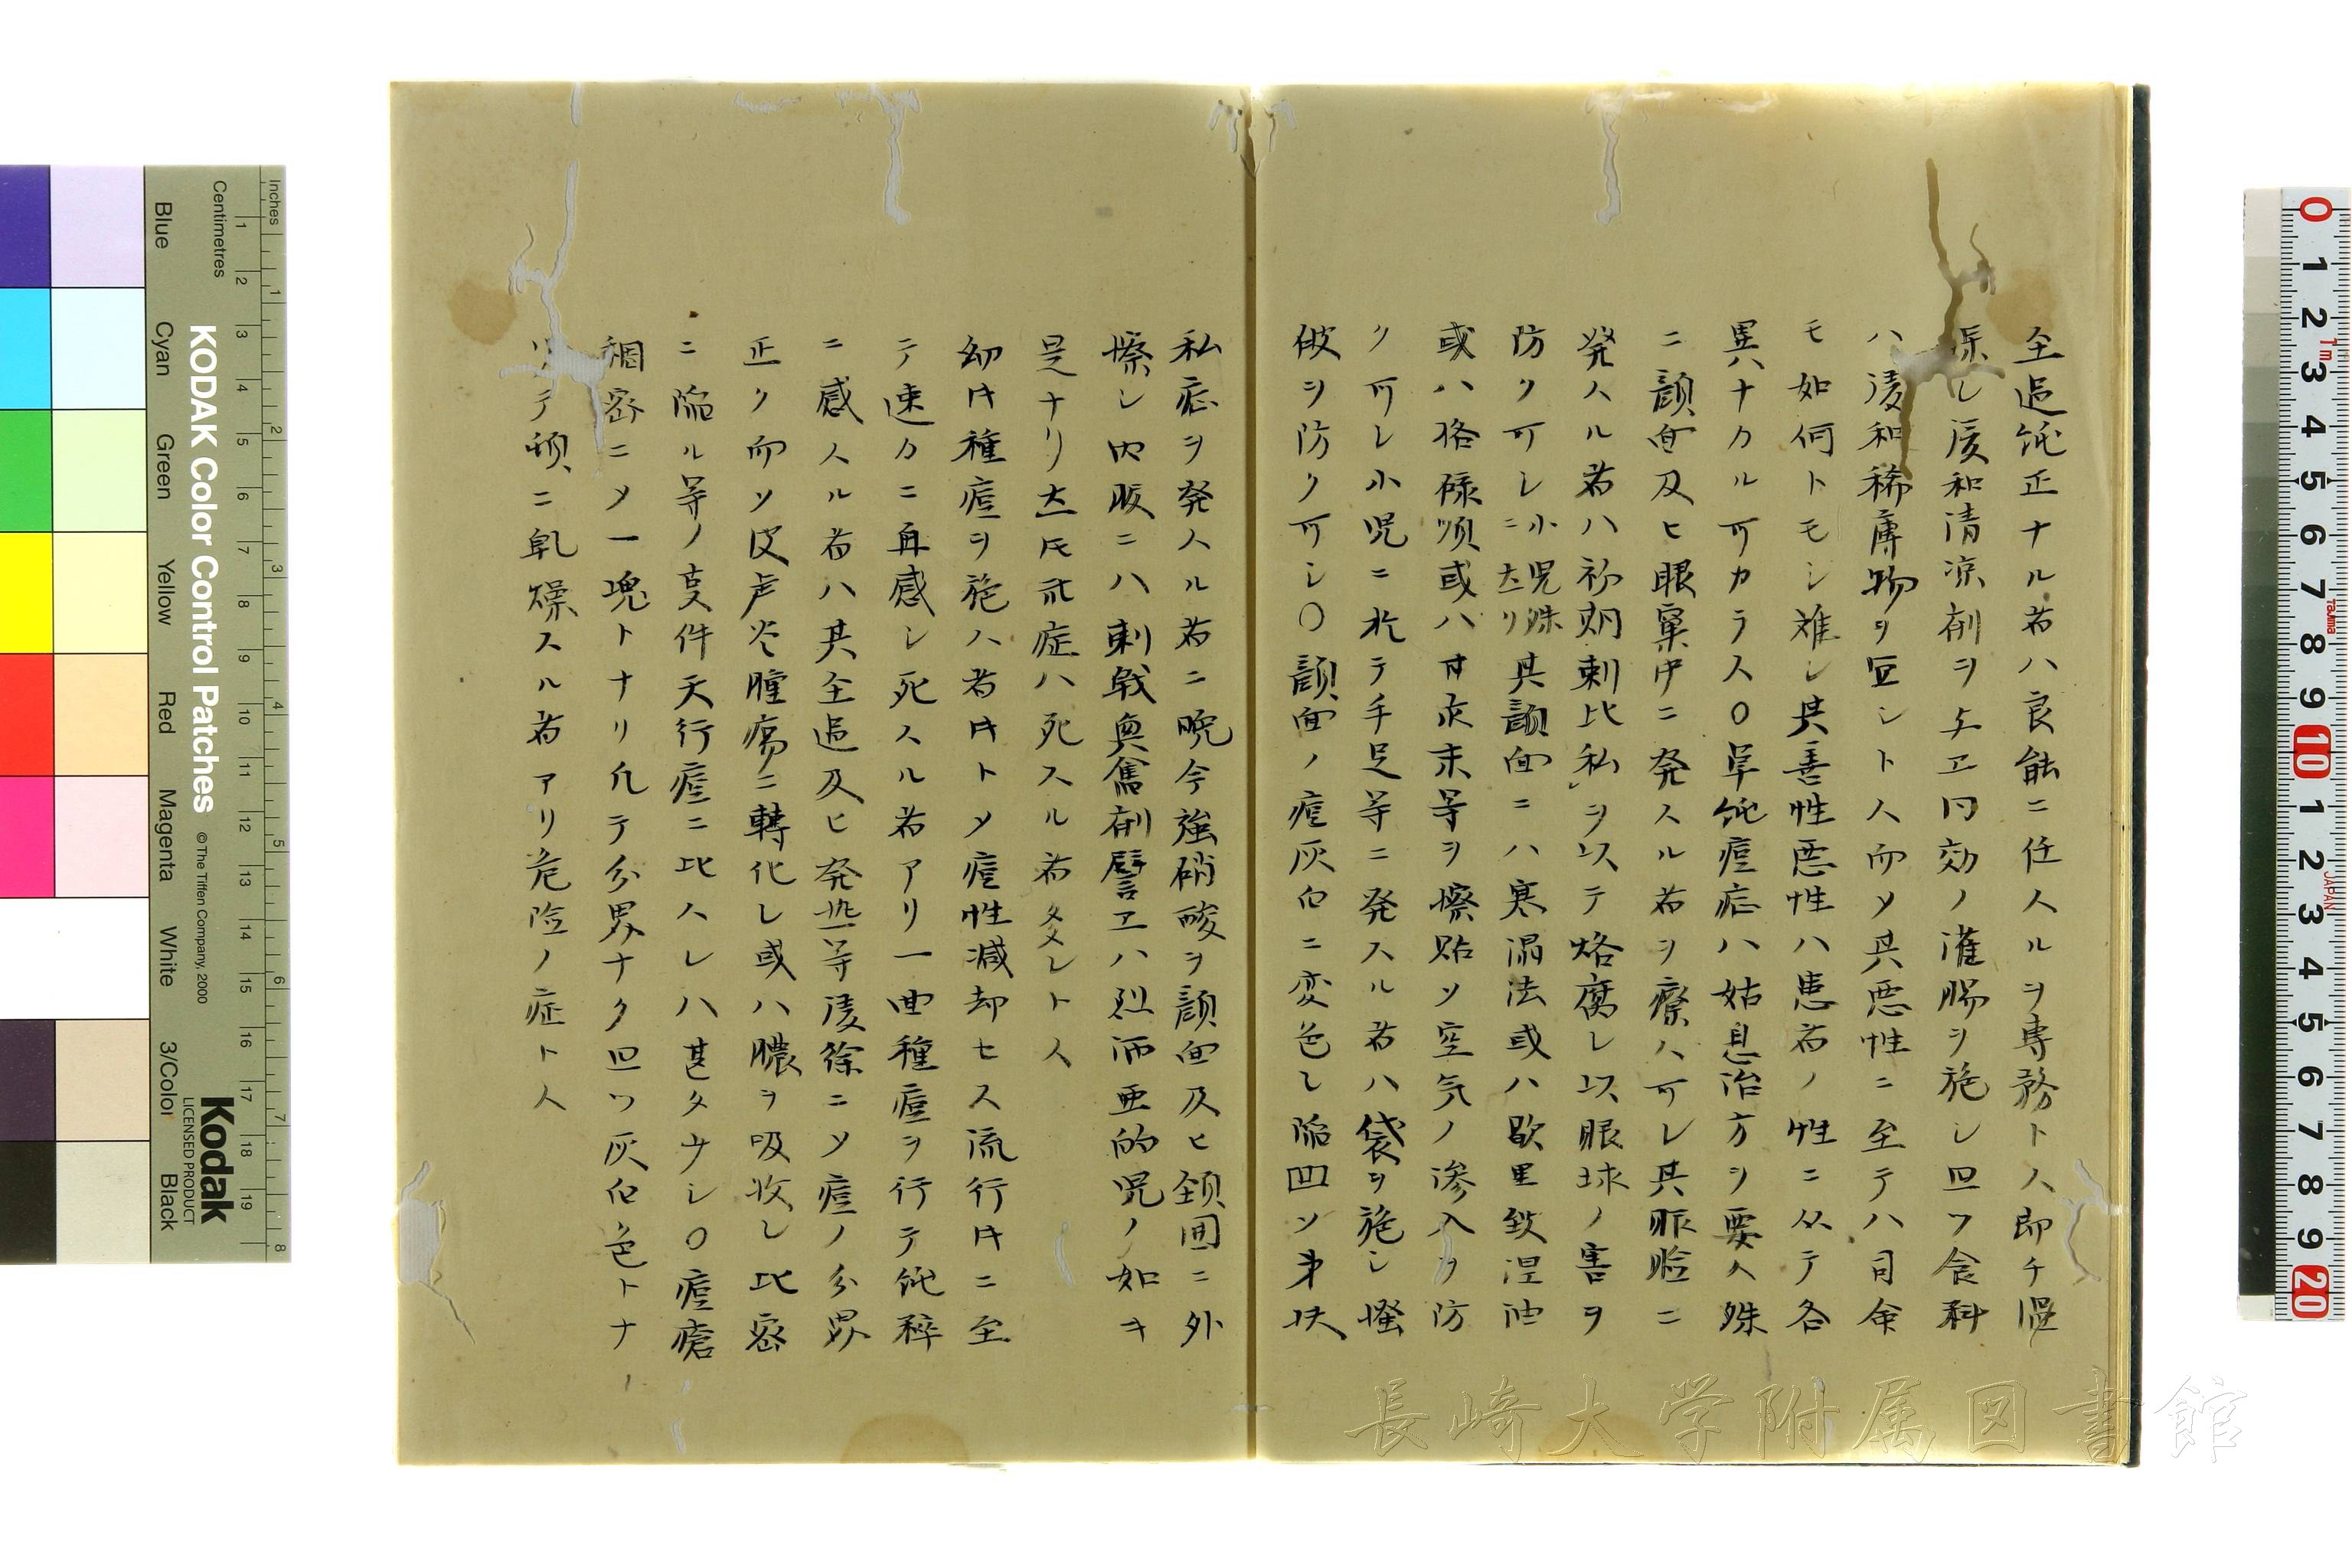 全過純正ナル者ハ良能ニ任スルヲ専務トス即チ温
保シ緩和清涼剤ヲ与エ同効ノ潅腸ヲ施シ且ツ食料
ハ淡和稀薄物ヲ宜シトス而ソ其悪性ニ至テハ司命
モ如何トモシ難シ其善性悪性ハ患者ノ性ニ从テ各
異ナカル可カラス○単純痘症ハ姑息治方ヲ要ス殊
ニ顔面及ヒ眼窠中ニ発スル者ヲ療ス可シ其眼瞼ニ
発スル者ハ硝酸刺比私ヲ以テ烙腐シ以眼球ノ害ヲ
防ク可シ小児殊ニ左リ其顔面ニハ寒溻法或ハ歇里致涅油
或ハ格碌頃或ハ甘汞末等ヲ擦貼ソ空気ノ滲入ヲ防
ク可シ小児ニ於テ手足等ニ発スル者ハ袋ヲ施シ搔
破ヲ防ク可シ○顔面ノ痘灰白ニ変色シ陥凹ソ弟扶
私症ヲ発スル者ニ晩今強硝酸ヲ顔面及ヒ頚囲ニ外
擦シ内服ニハ刺戟奥奮剤譬エハ烈洒亜的児ノ如キ
是ナリ左圧斎症ハ死スル者多シトス
幼时種痘ヲ施ス者时トソ痘性减却セス流行时ニ至
テ速カニ再感シ死スル者アリ一回種痘ヲ行テ純粋
ニ感スル者ハ其全過及ヒ発热等淡徐ニソ痘ノ分界
正ク而ソ皮膚炎腫瘍ニ轉化シ或ハ膿ヲ吸收シ比密
ニ陥ル等ノ支件天行痘ニ比スレハ甚タ少シ○痘瘡
稠密ニソ一塊トナリ凡テ分界ナク且ツ灰白色トナ
リテ頓ニ乾燥スル者アリ危険ノ症トス
KODAK Color Control Patches
© The Tiffen Company, 2000
Kodak
LICENSED PRODUCT
Inches
Centimetres
Blue
Cyan
Green
Yellow
Red
Magenta
White
3/Color
Black
JAPAN
長崎大学附属図書館